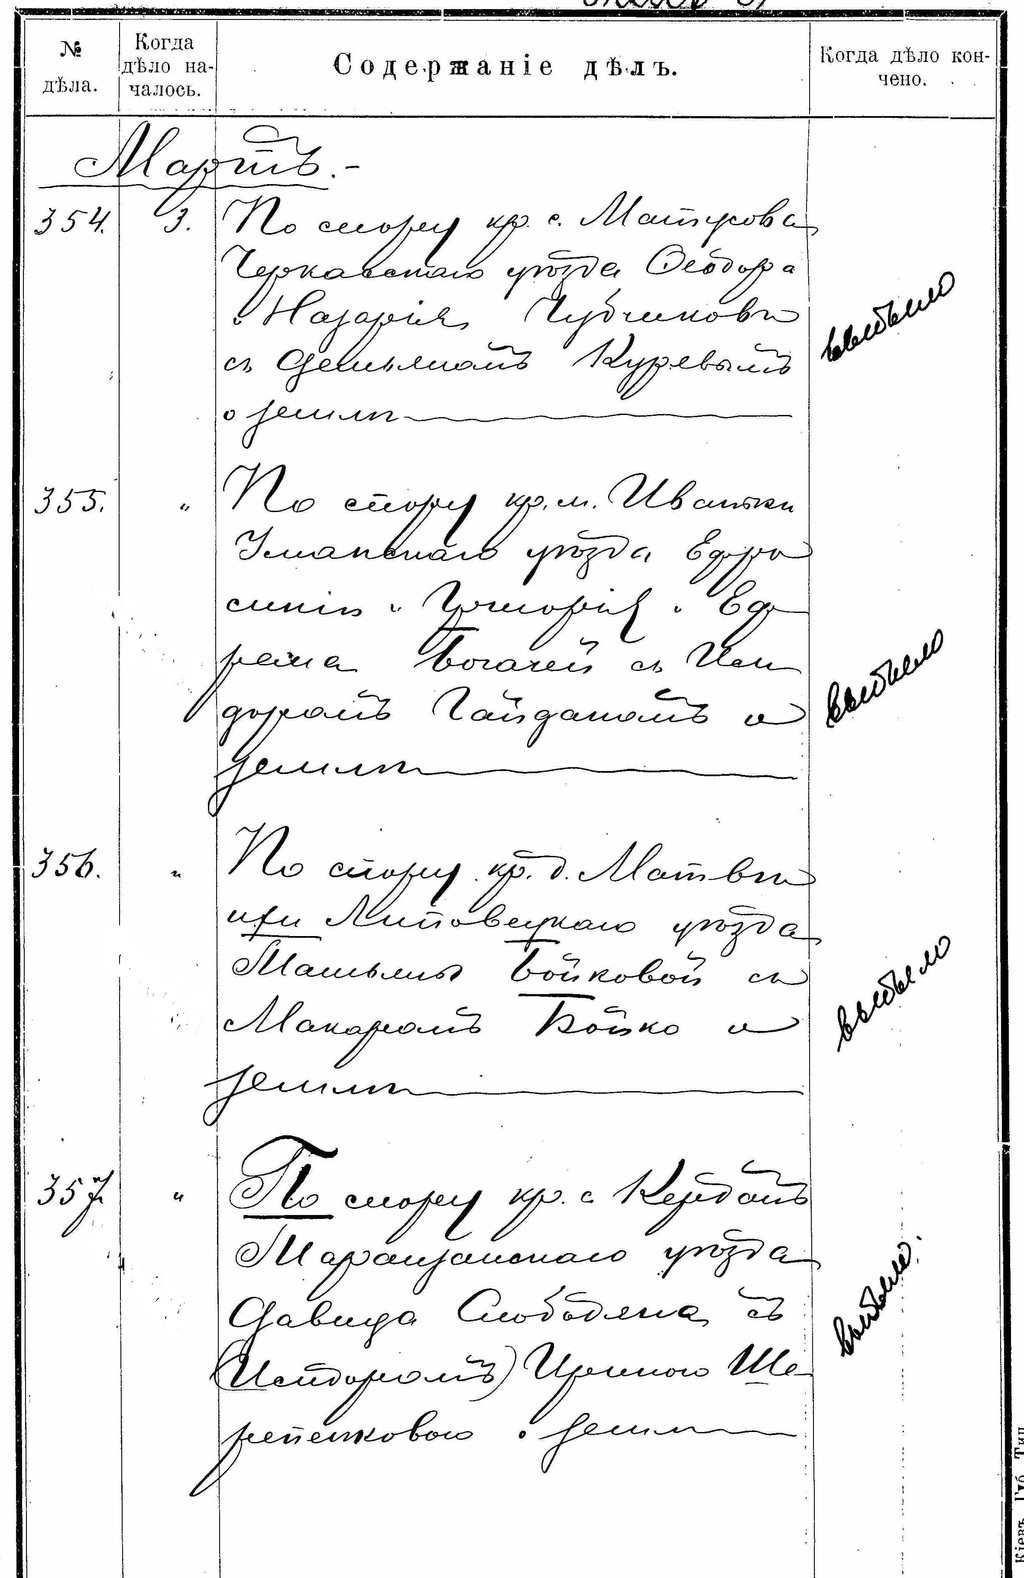 № дѣла.
Когда дѣло на-
чалось.
Содержаніе дѣлъ.
Когда дѣло кон-
чено.
Мартъ.-
354. 3. По спору кр. с. Матусова
Черкасскаго уѣзда Ѳеодора
и Назарія Чубчиковъ
съ Демьяномъ Куревымъ
о землѣ
выбыло
355. " По спору кр. м. Иваньки
Уманскаго уѣзда Ефро
синіи и Григорія и Еф
рема Богачей съ Иси
доромъ Гайданомъ о
землѣ
выбыло
356. " По спору кр. д. Матвѣи
хи Липовецкаго уѣзда
Татьяны Бойковой съ
Макаромъ Бойко о
землѣ
выбыло
357. " По спору кр. с. Кердан
Таращанскаго уѣзда
Давида Слободяна съ
(Исидоромъ) Ириною Ше-
репенковою о земл
выбыло.
Кіевъ. Губ. Тип.